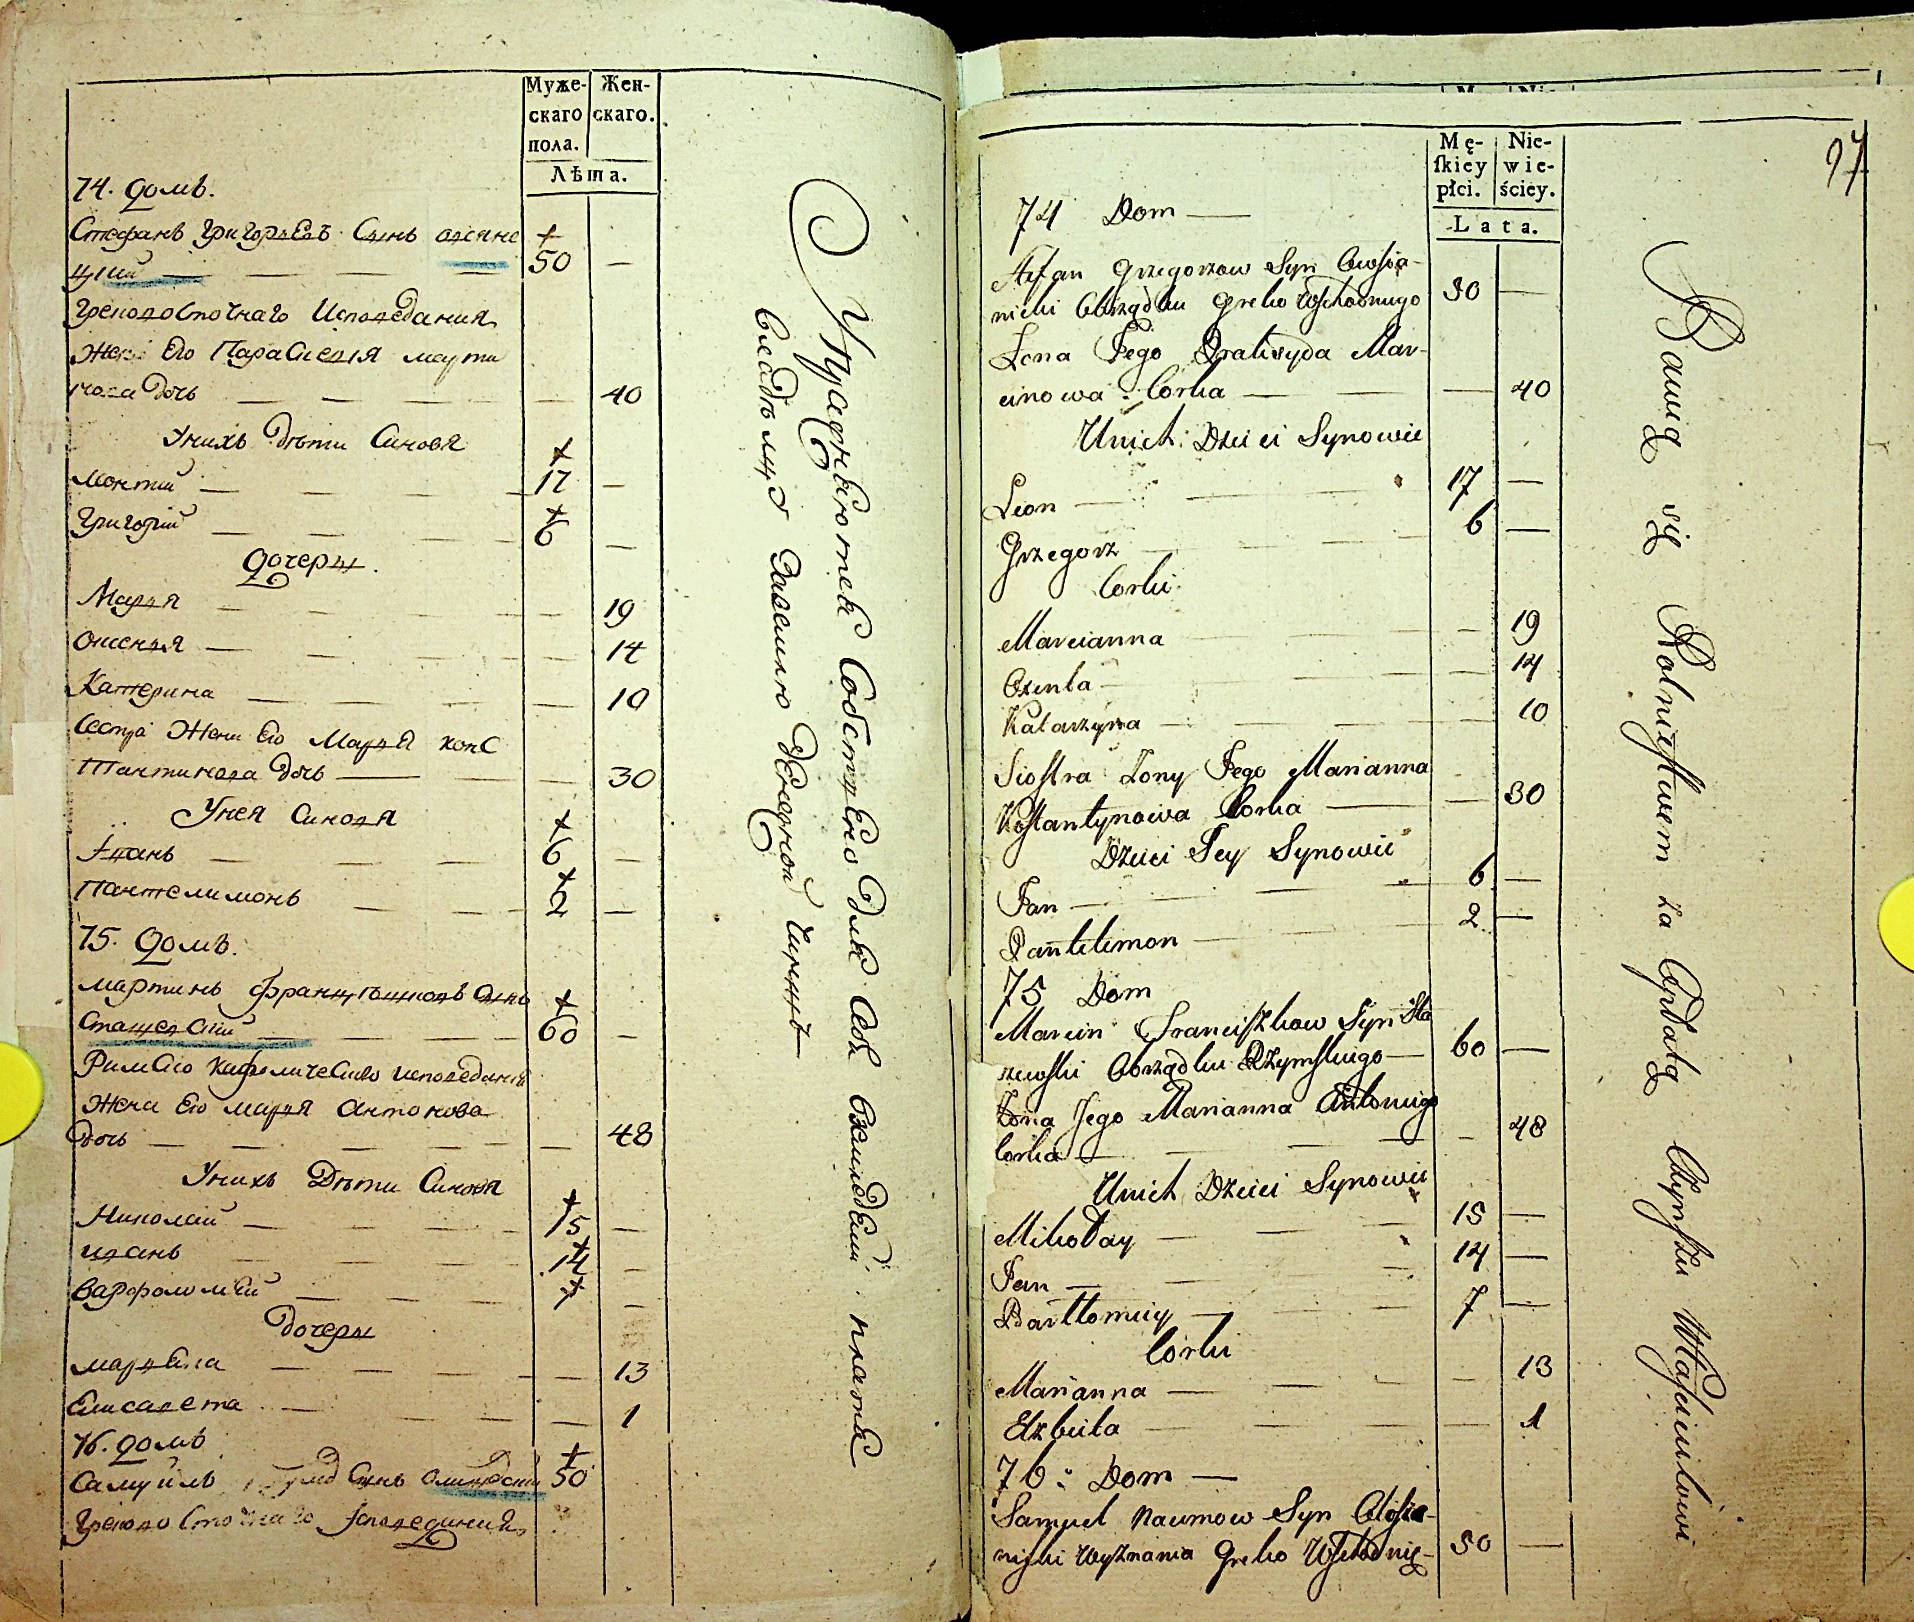 Муже-
скаго
пола.
Жен-
скаго.
Лѣта.
74. домъ.
Стефанъ Григорьевъ Сынъ овсяне
цкий
50
Грековосточнаго Исповедания
Жена Его Парасковия марти
нова дочь 40
Унихъ дѣти Синовя
17
Григорий 6
дочеры.
Маръя 19
14
Катерина 10
Сестра Жены Его Маръя конс
тантинова дочь 30
Унея Синовя
Иванъ 6
Пантелимонъ 2
75. домъ.
мартинъ францишковъ синъ
Сташевский 60
Римско кафоличеснаго исповеданий
Жена Его маръя антонова
дочь 48
Унихъ Дѣти Синовя
Николай 15
иванъ 14
варфоломей 7
дочеры
13
Елисавета 1
76. домъ
Самуйлъ Сынъ 50
Грековосточнаго Исповедания
Собственно для себя платя
владѣльцу
Mę-
skiey
płci.
Nie-
wie-
ściey.
Lata.
97
74 Dom
Stefan Grzegorzow Syn Owsia-
nicki Obrządku Greko Wschodniego 50
Żona Jego Praksyda Mar-
cinowa Corka 40
Unich Dzieci Synowie
Leon 17
Grzegorz 6
Corki
Marcianna 19
Oxenta 14
Katarzyna 10
Siostra Żony Jego Marianna
Kostantynowa Corka 30
Dzieci Jey Synowie
Jan 6
Pantelimon 2
75 Dom
Marcin Franciszkow Syn Sta
szewski Obrządku Rzymskiego 60
Żona Jego Marianna Antoniego
Corka 48
Unich Dzieci Synowie
Mikołay 15
Jan 14
Bartłomiey 7
Corki
Marianna 13
Elzbieta 1
76 Dom
Samuel Naumow Syn
Wyznania Greko Wschodnie- 50
Bawią się Rolnictwem za Opłatą Czynszu Właścicielowi